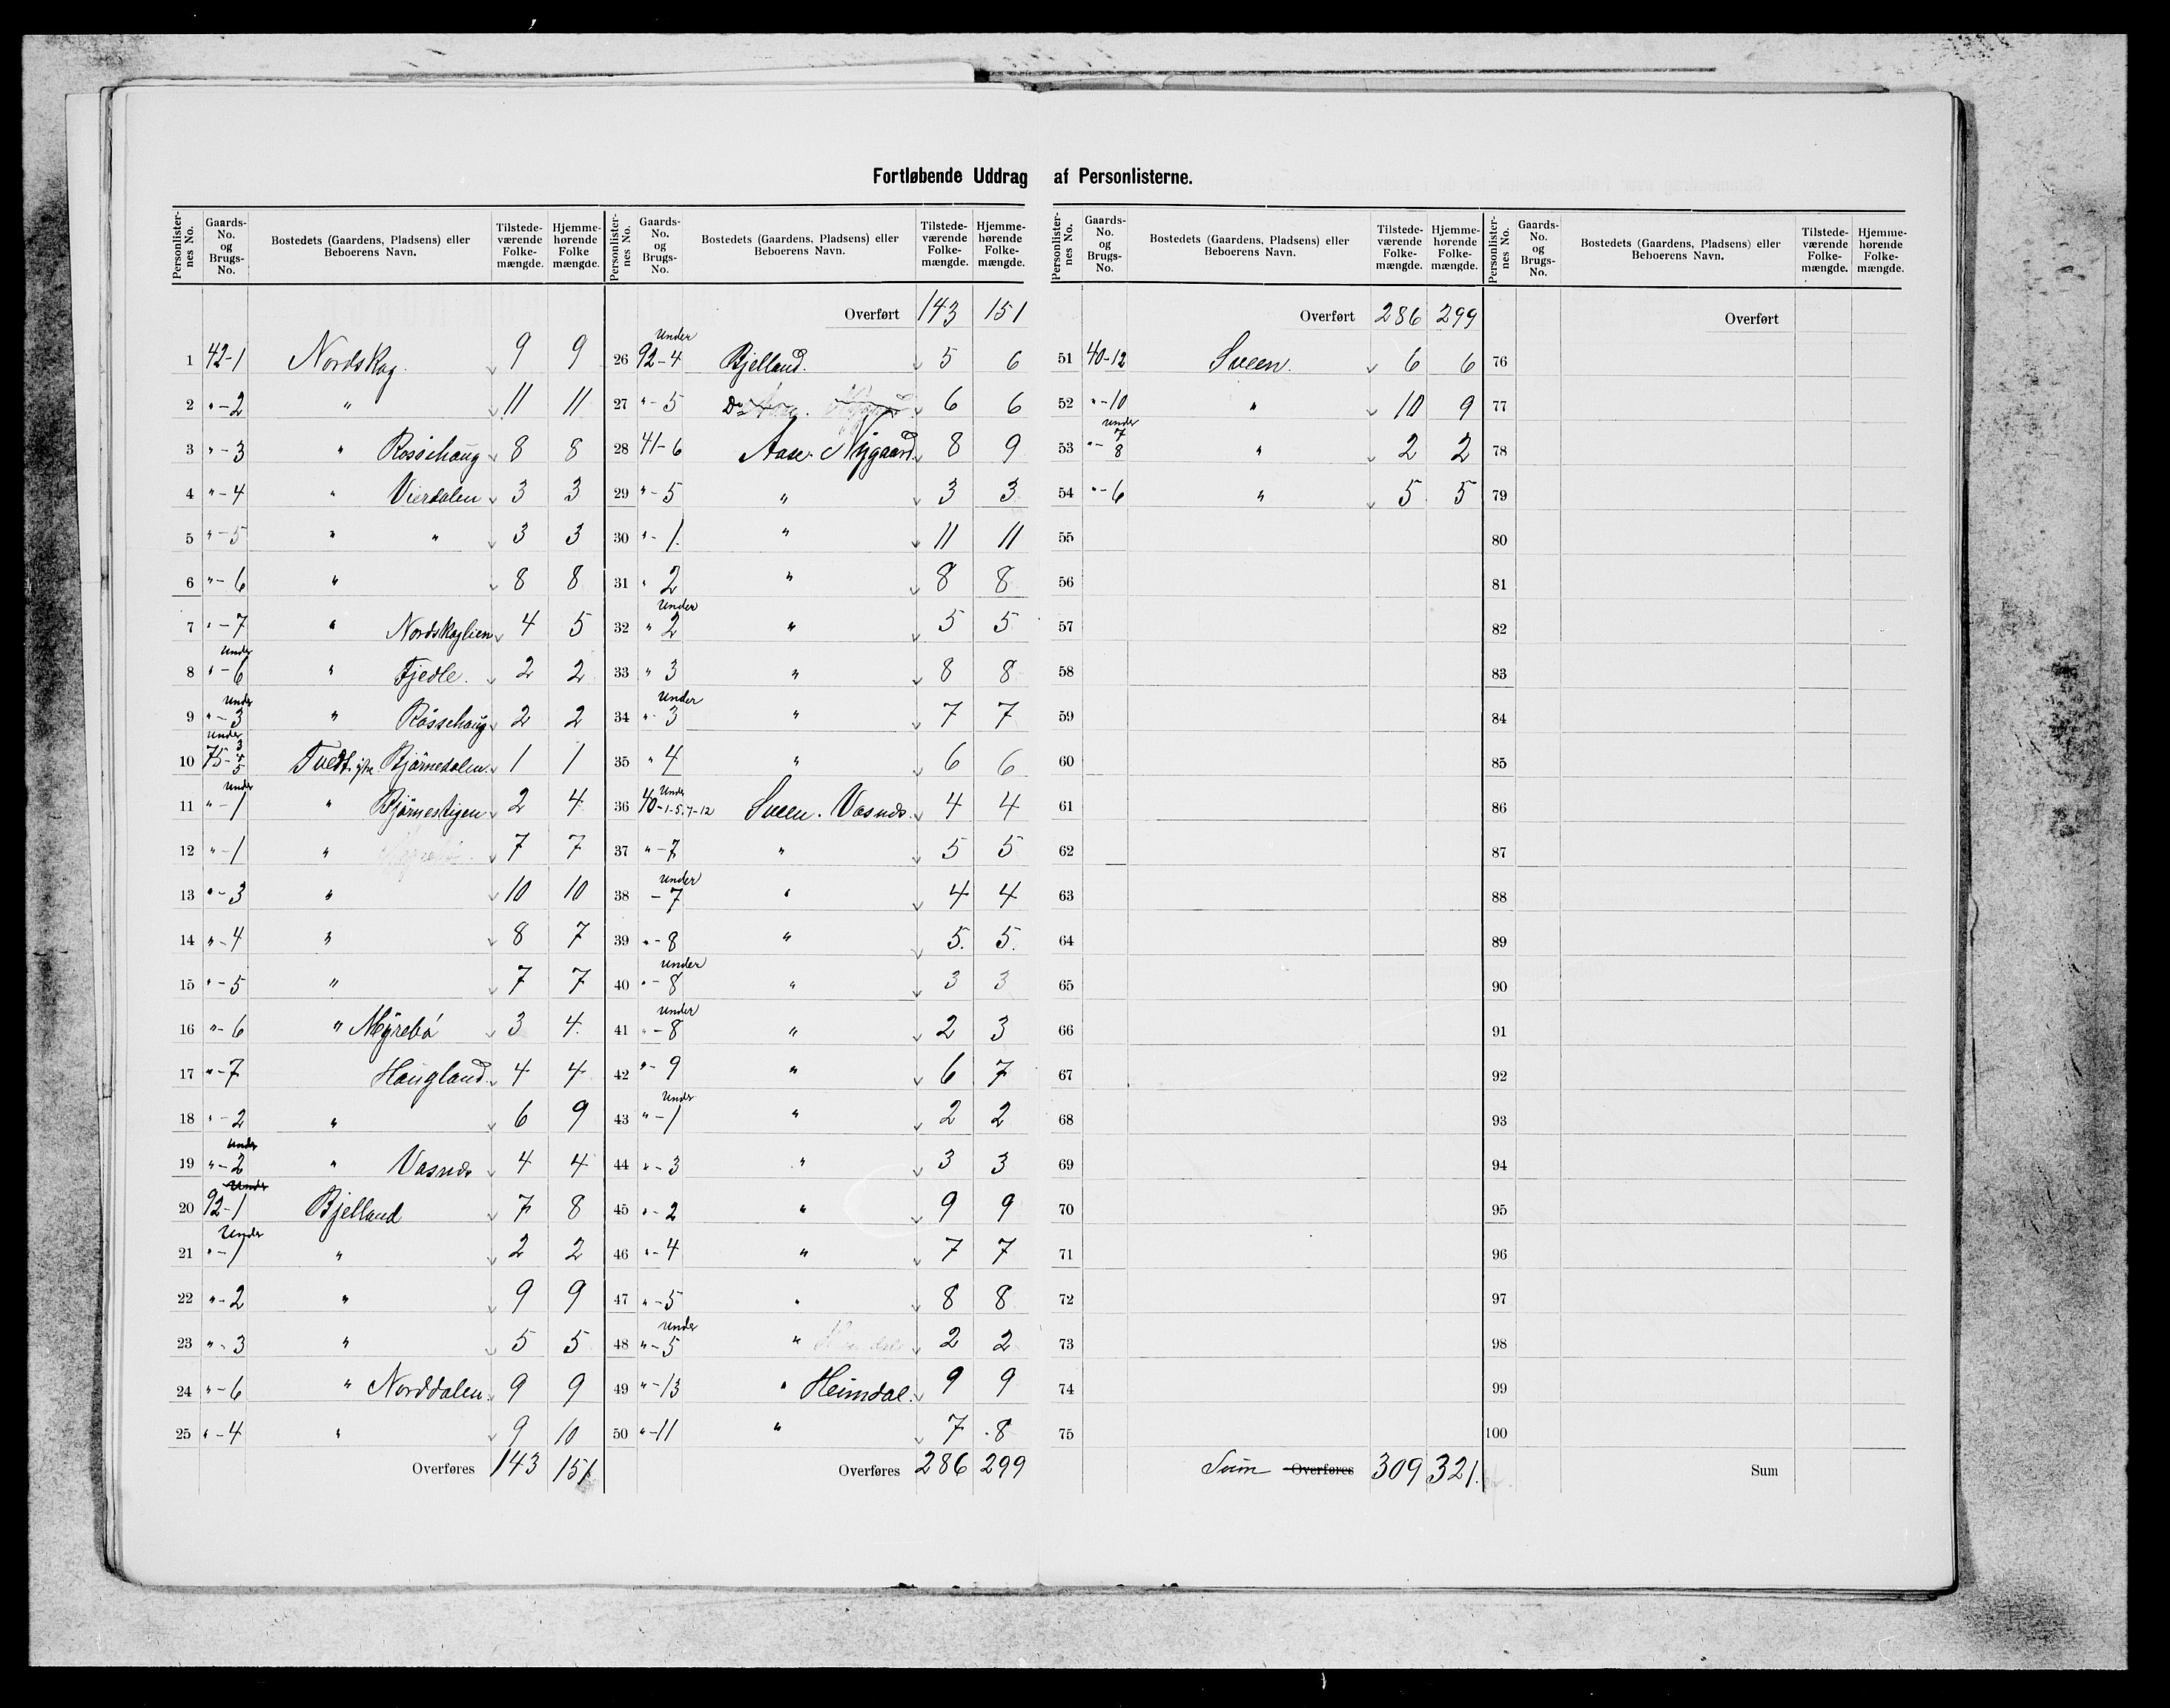 Fortløbende Uddrag af Personlisterne.
Personlisternes No. Gaards-No. og Brugs-No. Bostedets (Gaardens, Pladsens) eller Beboerens Navn. Tilstedeværende Folkemængde. Hjemmehørende Folkemængde.
1 42-1 Nordskog. 9 9
2 "-2 " 11 11
3 "-3 " Rossehaug 8 8
4 "-4 " Vierdalen 3 3
5 "-5 " " 3 3
6 "-6 " 8 8
7 "-7 " Nordskoglien 4 5
8 Under "-6 " Fjedle. 2 2
9 Under "-3 " Rössehaug 2 2
10 Under 75-3 4 5 Tvedt ytre Bjørnedalen 1 1
11 Under "-1 " Bjørnestigen 2 4
12 "-1 " 7 7
13 "-3 " 10 10
14 "-4 " 8 7
15 "-5 " 7 7
16 "-6 " Myrebö 3 4
17 "-7 Haugland 4 4
18 "-2 " 6 9
19 Under "-2 " Vasnæs 4 4
20 Under 92-1 Bjelland 7 8
21 Under "-1 " 2 2
22 "-2 " 9 9
23 "-3 " 5 5
24 "-6 " Norddalen 9 9
25 "-4 " 9 10
Overføres 143 151
Personlisternes No. Gaards-No. og Brugs-No. Bostedets (Gaardens, Pladsens) eller Beboerens Navn. Tilstedeværende Folkemængde. Hjemmehørende Folkemængde.
Overført 143 151
26 Under 92-4 Bjelland. 5 6
27 "-5 Do 6 6
28 41-6 Aase. Nygaard 8 9
29 "-5 " 3 3
30 "-1 " 11 11
31 " 2 " 8 8
32 Under " 2 " 5 5
33 " 3 " 8 8
34 Under " 3 " 7 7
35 " 4 " 6 6
36 Under 40-1-5.7-12 Sveen. Vasnæs. 4 4
37 "-7 " 5 5
38 Under -7 " 4 4
39 "-8 " 5. 5.
40 Under "-8 " 3 3
41 Under "-8 " 2 3
42 "-9 " 6 7
43 Under "-1 " 2 2
44 "-3 " 3 3
45 "-2 " 9 9
46 "-4 " 7 7
47 "-5 " 8 8
48 Under "-5 " 2 2
49 "-13 " Heimdal. 9 9
50 "-11 " 7 8
Overføres 286 299
Personlisternes No. Gaards-No. og Brugs-No. Bostedets (Gaardens, Pladsens) eller Beboerens Navn. Tilstedeværende Folkemængde. Hjemmehørende Folkemængde.
Overført 286 299
51 40-12 Sveen. 6 6
52 "-10 " 10 9
53 under "-7 8 " 2 2
54 "-6 " 5 5
55
56
57
58
59
60
61
62
63
64
65
66
67
68
69
70
71
72
73
74
75
Sum Overføres 309 321.
Personlisternes No. Gaards-No. og Brugs-No. Bostedets (Gaardens, Pladsens) eller Beboerens Navn. Tilstedeværende Folkemængde. Hjemmehørende Folkemængde.
Overført
76
77
78
79
80
81
82
83
84
85
86
87
88
89
90
91
92
93
94
95
96
97
98
99
100
Sum